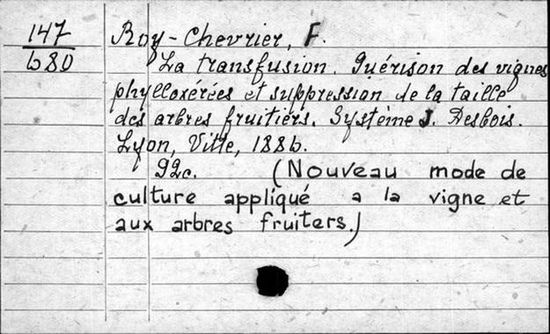 147 Roy-Chevrier, F.
680 La transfusion. Guérison des vignes
phylloxérées et suppression de la taille
des arbres fruitiers. Système J. Desbois.
Lyon, Vitte, 1886.
92c. (Nouveau mode de
culture appliqué a la vigne et
aux arbres fruiters.)